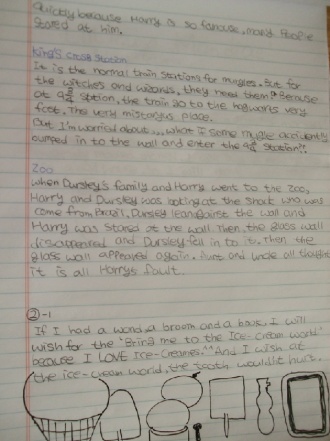 Quickly because Harry is so famouse, many people
stared at him.
King's Cross Station
It is the normal train stations for mugles. But for
the witches and wizards, they need them? Because
at 9¾ station, the train go to the hogwarts very
fast. The very misterious place.
But I'm worried about... what if some mugle accidently
bumped in to the wall and enter the 9¾ station!!
Zoo
When Dursley's family and Harry went to the zoo,
Harry and Dursley was looking at the snake who was
come from Brazil. Dursley lean against the wall and
Harry was stared at the wall. Then, the glass wall
disappeared and Dursley fell in to it. Then the
glass wall appeared again. Aunt and uncle all thought
it is all Harry's fault.
②-1
If I had a wand, a broom and a
wish for the "Bring me to the Ice-cream world"
because I LOVE Ice-creames!^^ And I wish at
the ice-cream world, the tooth wouldn't hurt.